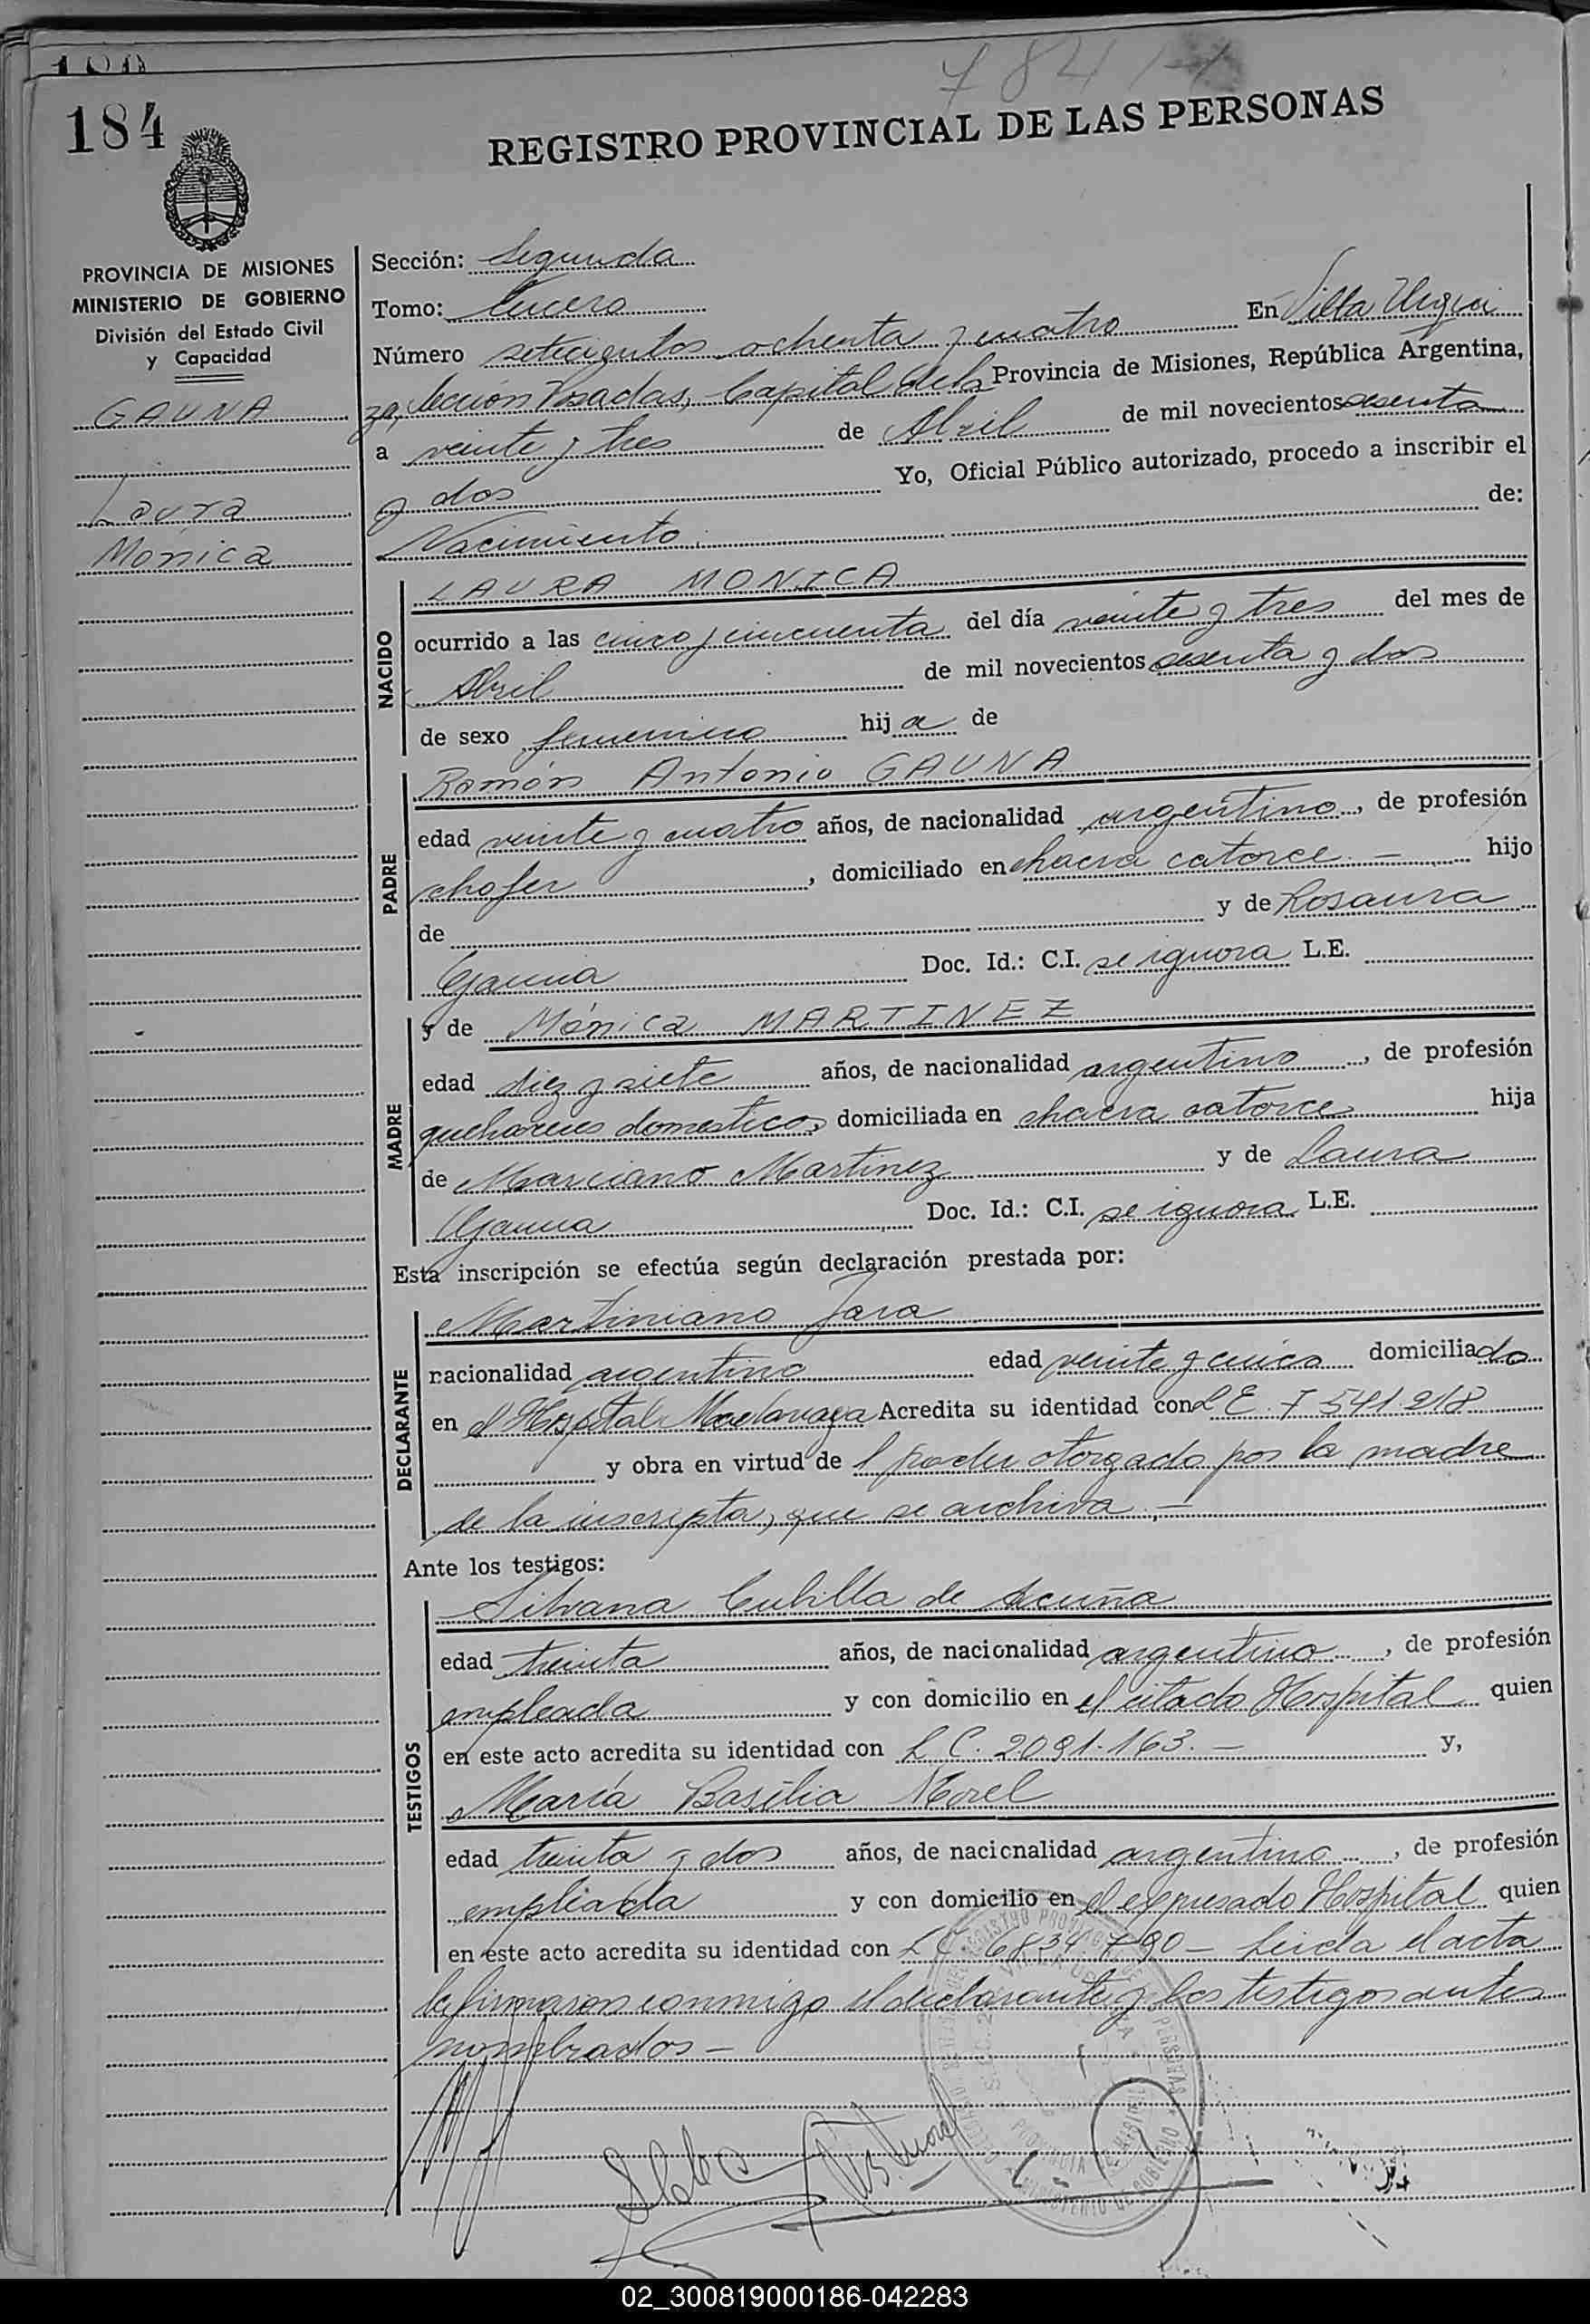 784
184
REGISTRO PROVINCIAL DE LAS PERSONAS
PROVINCIA DE MISIONES
MINISTERIO DE GOBIERNO
División del Estado Civil
y Capacidad
GAUNA
Laura
Mónica
Sección: Segunda
Tomo: tercero
Número setecientos ochenta y cuatro En Villa Urqui
za, Sección Posadas, Capital de la Provincia de Misiones, República Argentina,
a veinte y tres de Abril de mil novecientos sesenta
y dos Yo, Oficial Público autorizado, procedo a inscribir el
Nacimiento de:
NACIDO
LAURA MONICA
ocurrido a las cinco y cincuenta del día veinte y tres del mes de
Abril de mil novecientos sesenta y dos
de sexo femenino hija de
PADRE
Ramón Antonio GAUNA
edad veinte y cuatro años, de nacionalidad argentino, de profesión
chofer, domiciliado en chacra catorce.— hijo
de y de Rosaura
Gauna Doc. Id.: C.I. se ignora L.E.
MADRE
y de Mónica MARTINEZ
edad diez y siete años, de nacionalidad argentino, de profesión
quehaceres domesticos, domiciliada en chacra catorce hija
de Marciano Martinez y de Laura
Gauna Doc. Id.: C.I. se ignora L.E.
Esta inscripción se efectúa según declaración prestada por:
DECLARANTE
Martiniano Jara
nacionalidad argentino edad veinte y cinco domiciliado
en el Hospital Madariaga Acredita su identidad con L E. 7.541.218
y obra en virtud de l poder otorgado por la madre
de la inscripta, que se archiva.—
Ante los testigos:
TESTIGOS
Silvana Cubilla de Acuña
edad treinta años, de nacionalidad argentino, de profesión
empleada y con domicilio en el citado Hospital quien
en este acto acredita su identidad con L C. 2.091.163.— y,
María Basilia Morel
edad treinta y dos años, de nacionalidad argentino, de profesión
empleada y con domicilio en el expresado Hospital quien
en este acto acredita su identidad con L C 6834.790— Leida el acta
la firmaron conmigo el declarante y los testigos antes
nombrados—
02_300819000186-042283